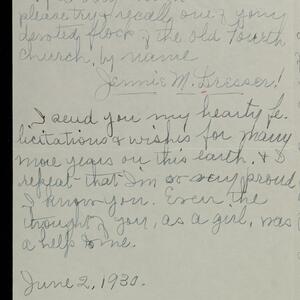 please try & recall one of your
devoted flock of the old Fourth
church, by name
Jennie M. Dresser!
I send you my hearty fe-
licitations & wishes for many
more years on this earth. & I
repeat - that I'm so very proud
I know you. Even the
thought of you, as a girl, was
a help to me.
June 2, 1930.